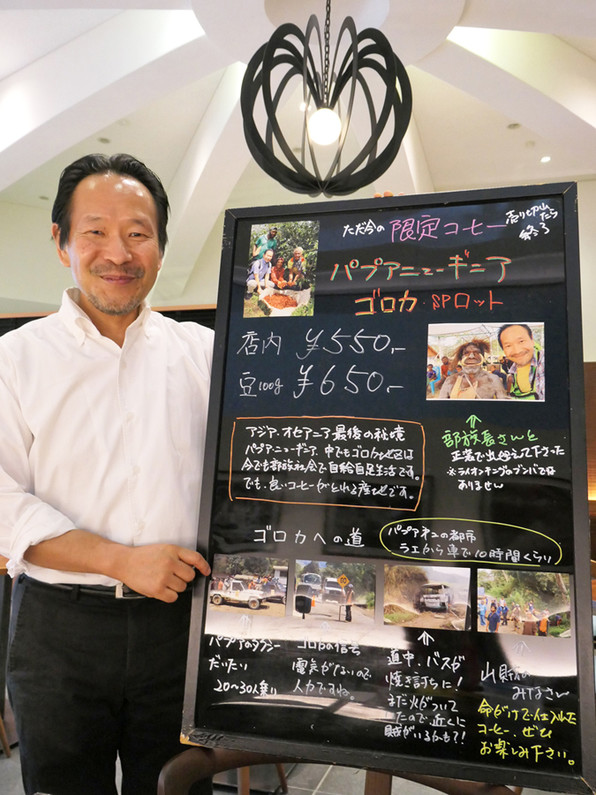 ただ今の 限定コーヒー
売り切れたら
終了
パプアニューギニア
ゴロカ SPロット
店内 ¥550,-
豆100g ¥650,-
部族長さんと
正装で出迎えて下さった
※ライオンキングのプンバでは
ありません
アジア・オセアニア最後の秘境
パプアニューギニア、中でもゴロカ地区は
今でも部族社会で自給自足生活です。
でも、良いコーヒーがとれる産地です。
ゴロカへの道
パプアニューの都市
ラエから車で10時間くらい
パプアのタクシー
だいたい
20〜30人乗り
ゴロカの信号
電気がないので
人力ですね。
道中、バスが
焼き討ちに!
まだ火がついて
いたので近くに
賊がいるかも?!
山賊の
みなさん
命がけで仕入れた
コーヒー、ぜひ
お楽しみ下さい。